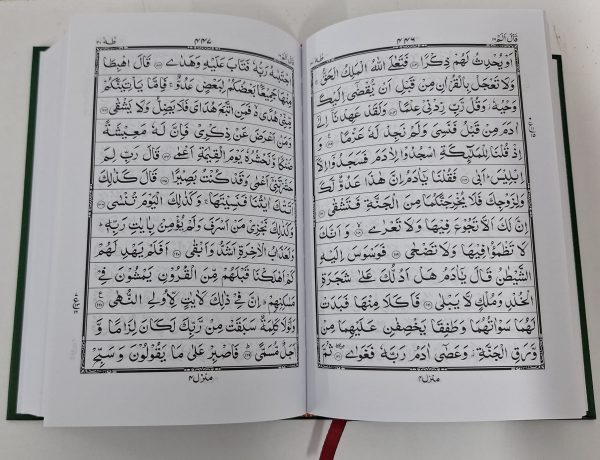 قَالَ اَلَمْ ١٦
٤٤٦
طٰهٰ ٢٠
اَوْ يُحْدِثُ لَهُمْ ذِكْرًا ۝ فَتَعٰلَى اللّٰهُ الْمَلِكُ الْحَقُّ ۚ
وَلَا تَعْجَلْ بِالْقُرْاٰنِ مِنْ قَبْلِ اَنْ يُّقْضٰٓى اِلَيْكَ
وَحْيُهٗ ؗ وَقُلْ رَّبِّ زِدْنِيْ عِلْمًا ۝ وَلَقَدْ عَهِدْنَآ اِلٰٓى
اٰدَمَ مِنْ قَبْلُ فَنَسِيَ وَلَمْ نَجِدْ لَهٗ عَزْمًا ۝ وَ
اِذْ قُلْنَا لِلْمَلٰٓئِكَةِ اسْجُدُوْا لِاٰدَمَ فَسَجَدُوْٓا اِلَّآ
اِبْلِيْسَ ؕ اَبٰى ۝ فَقُلْنَا يٰٓاٰدَمُ اِنَّ هٰذَا عَدُوٌّ لَّكَ
وَلِزَوْجِكَ فَلَا يُخْرِجَنَّكُمَا مِنَ الْجَنَّةِ فَتَشْقٰى ۝
اِنَّ لَكَ اَلَّا تَجُوْعَ فِيْهَا وَلَا تَعْرٰى ۝ وَاَنَّكَ
لَا تَظْمَؤُا فِيْهَا وَلَا تَضْحٰى ۝ فَوَسْوَسَ اِلَيْهِ
الشَّيْطٰنُ قَالَ يٰٓاٰدَمُ هَلْ اَدُلُّكَ عَلٰى شَجَرَةِ
الْخُلْدِ وَمُلْكٍ لَّا يَبْلٰى ۝ فَاَكَلَا مِنْهَا فَبَدَتْ
لَهُمَا سَوْاٰتُهُمَا وَطَفِقَا يَخْصِفٰنِ عَلَيْهِمَا مِنْ
وَّرَقِ الْجَنَّةِ ؗ وَعَصٰٓى اٰدَمُ رَبَّهٗ فَغَوٰى ۝ ثُمَّ
منزل ٤
قَالَ اَلَمْ ١٦
٤٤٧
طٰهٰ ٢٠
اجْتَبٰهُ رَبُّهٗ فَتَابَ عَلَيْهِ وَهَدٰى ۝ قَالَ اهْبِطَا
مِنْهَا جَمِيْعًۢا بَعْضُكُمْ لِبَعْضٍ عَدُوٌّ ۚ فَاِمَّا يَاْتِيَنَّكُمْ
مِّنِّيْ هُدًى ۙ فَمَنِ اتَّبَعَ هُدَايَ فَلَا يَضِلُّ وَلَا يَشْقٰى ۝
وَمَنْ اَعْرَضَ عَنْ ذِكْرِيْ فَاِنَّ لَهٗ مَعِيْشَةً
ضَنْكًا وَّنَحْشُرُهٗ يَوْمَ الْقِيٰمَةِ اَعْمٰى ۝ قَالَ رَبِّ لِمَ
حَشَرْتَنِيْٓ اَعْمٰى وَقَدْ كُنْتُ بَصِيْرًا ۝ قَالَ كَذٰلِكَ
اَتَتْكَ اٰيٰتُنَا فَنَسِيْتَهَا ۚ وَكَذٰلِكَ الْيَوْمَ تُنْسٰى ۝
وَكَذٰلِكَ نَجْزِيْ مَنْ اَسْرَفَ وَلَمْ يُؤْمِنْۢ بِاٰيٰتِ رَبِّهٖ ؕ
وَلَعَذَابُ الْاٰخِرَةِ اَشَدُّ وَاَبْقٰى ۝ اَفَلَمْ يَهْدِ لَهُمْ
كَمْ اَهْلَكْنَا قَبْلَهُمْ مِّنَ الْقُرُوْنِ يَمْشُوْنَ فِيْ
مَسٰكِنِهِمْ ؕ اِنَّ فِيْ ذٰلِكَ لَاٰيٰتٍ لِّاُولِي النُّهٰى ۝
وَلَوْلَا كَلِمَةٌ سَبَقَتْ مِنْ رَّبِّكَ لَكَانَ لِزَامًا وَّ
اَجَلٌ مُّسَمًّى ۝ فَاصْبِرْ عَلٰى مَا يَقُوْلُوْنَ وَسَبِّحْ
منزل ٤